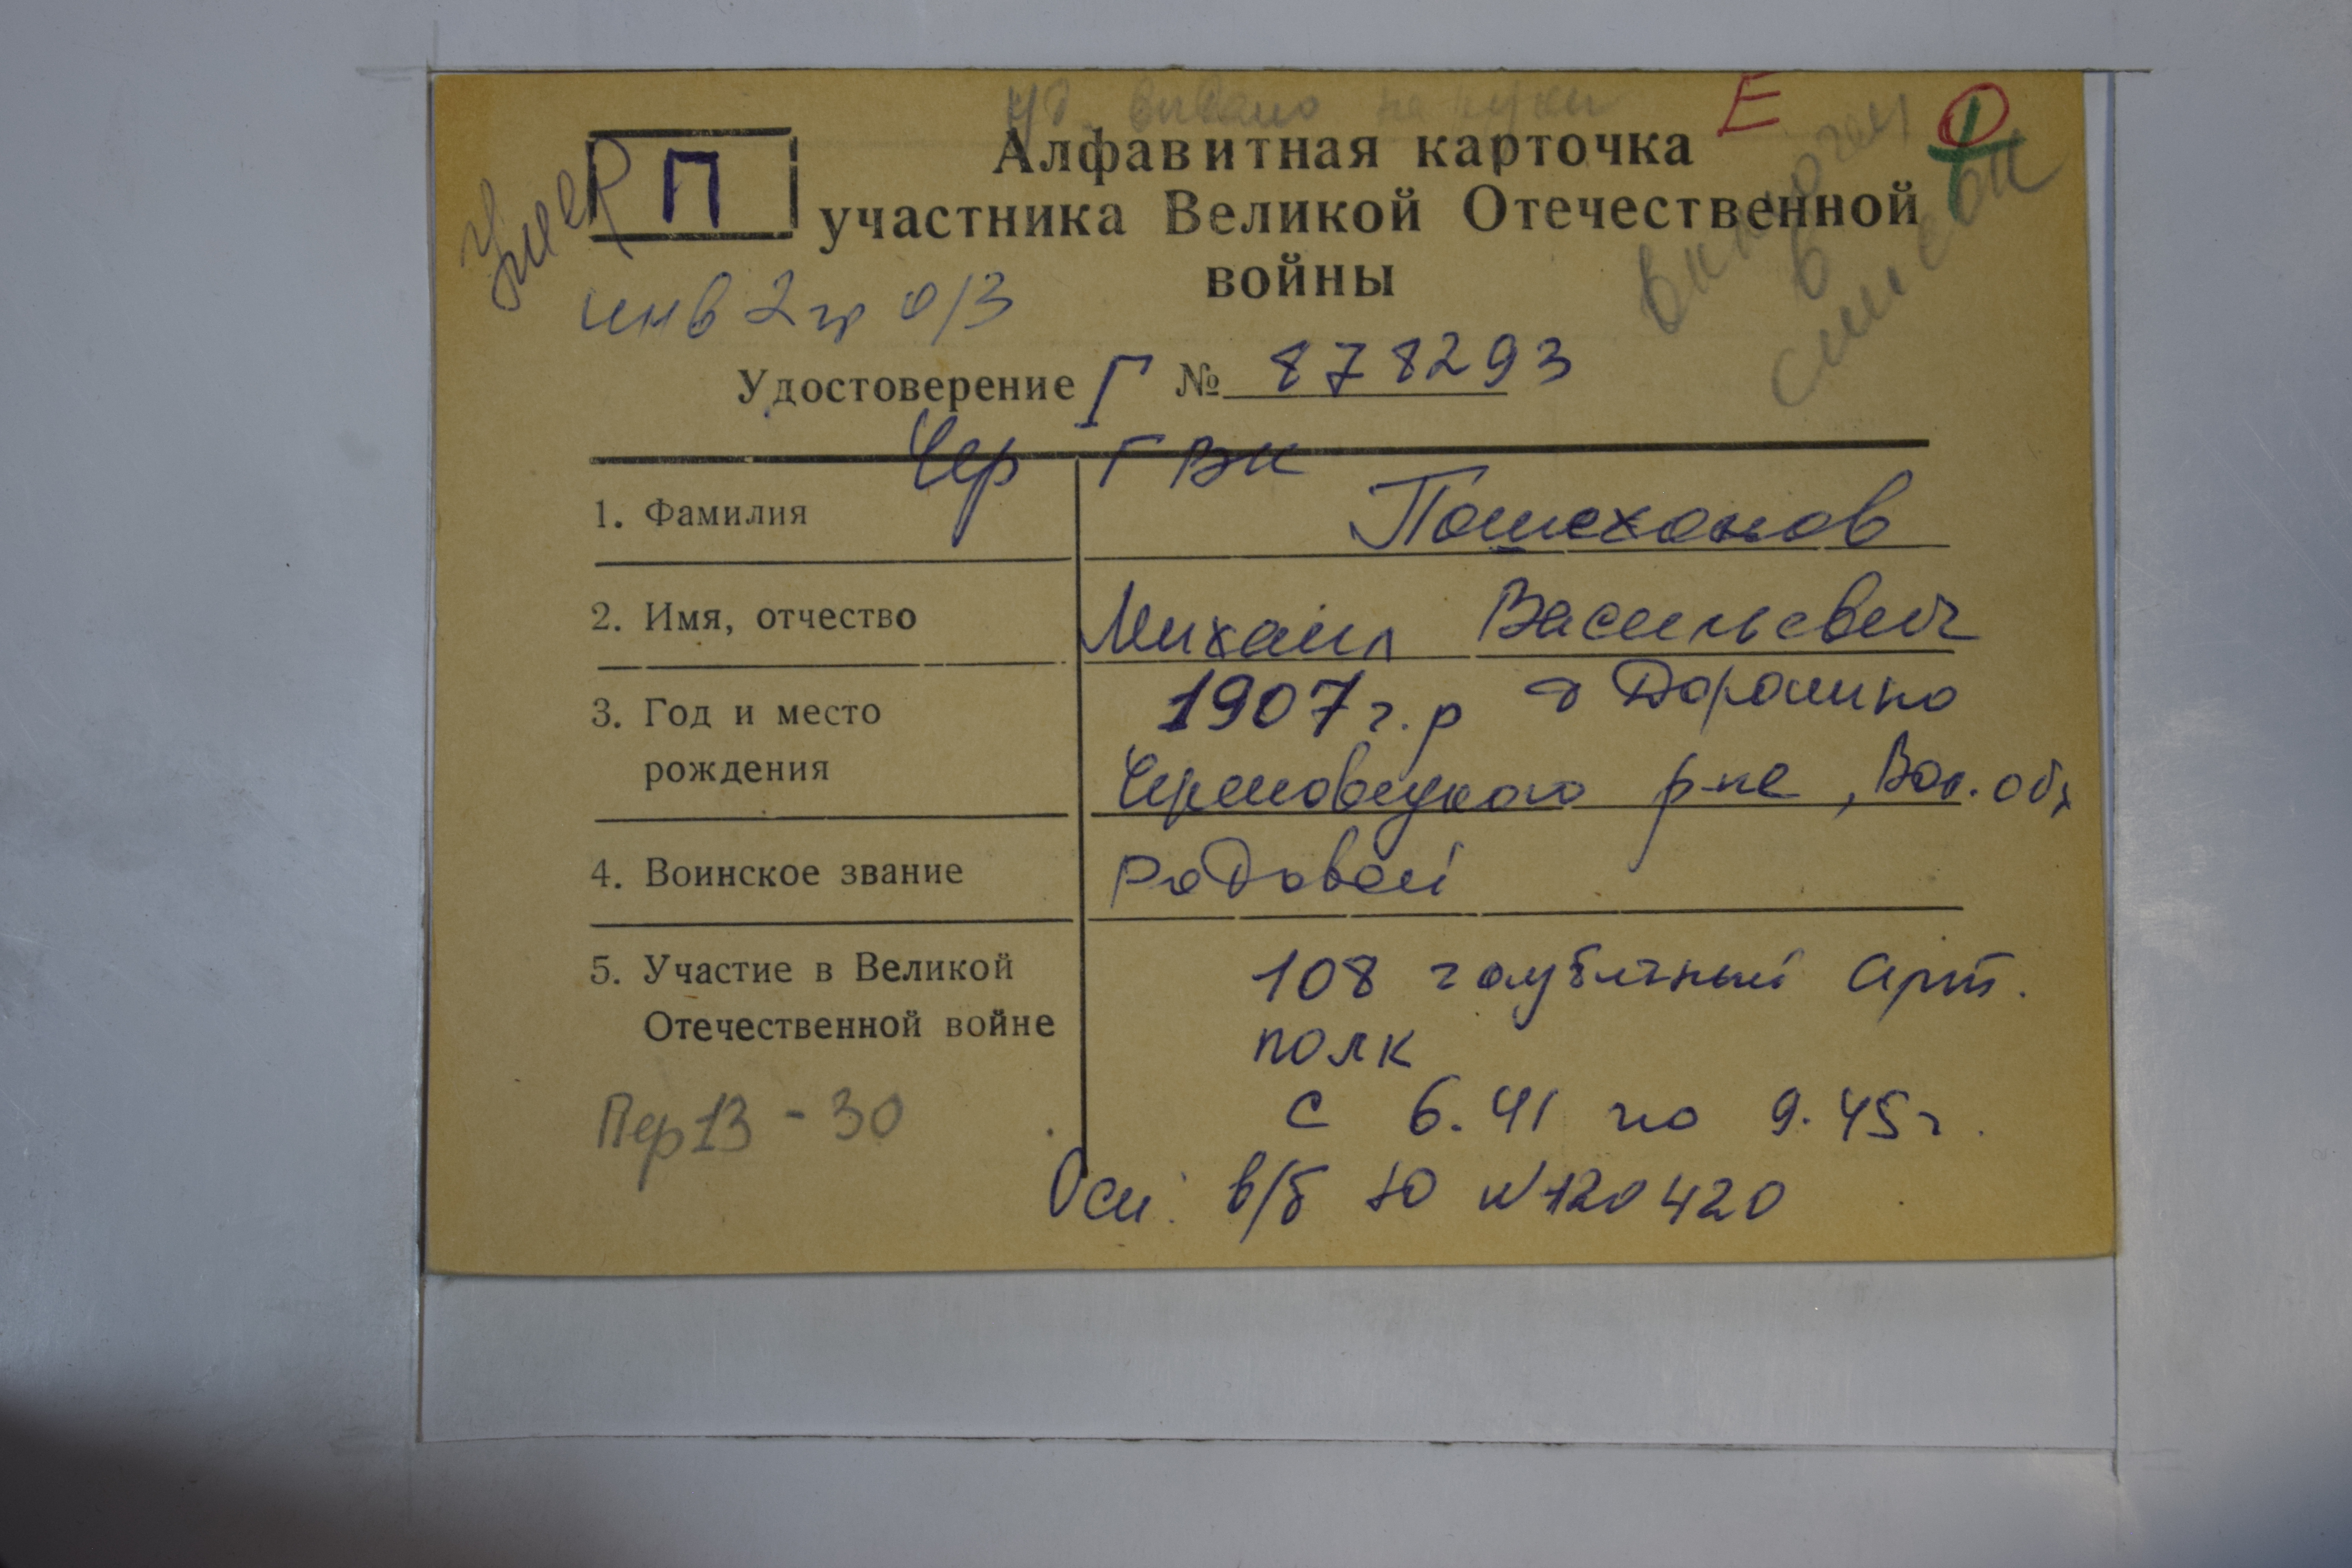 уд. выдано на руки
Е
Алфавитная карточка
П
участника Великой Отечественной
войны
Умер
включен
в
список
инв 2 гр о/з
Удостоверение Г № 878293
Чер ГВК
1. Фамилия Пошехонов
2. Имя, отчество Михаил Васильевич
3. Год и место 1907 г.р д Доронино
рождения Череповецкого р-на, Вол. обл
4. Воинское звание рядовой
5. Участие в Великой 108 гаубичный арт.
Отечественной войне полк
с 6.41 по 9.45 г.
Пер 13 - 30
Осн: в/б Ю №120420